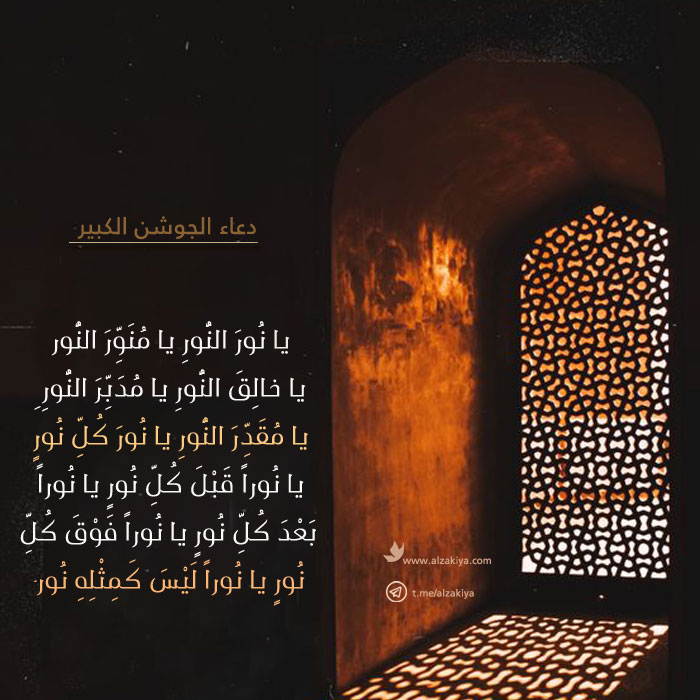 دعاء الجوشن الكبير
يا نُورَ النُّورِ يا مُنَوِّرَ النُّور
يا خالِقَ النُّورِ يا مُدَبِّرَ النُّورِ
يا مُقَدِّرَ النُّورِ يا نُورَ كُلِّ نُورٍ
يا نُوراً قَبْلَ كُلِّ نُورٍ يا نُوراً
بَعْدَ كُلِّ نُورٍ يا نُوراً فَوْقَ كُلِّ
نُورٍ يا نُوراً لَيْسَ كَمِثْلِهِ نُور
www.alzakiya.com
t.me/alzakiya